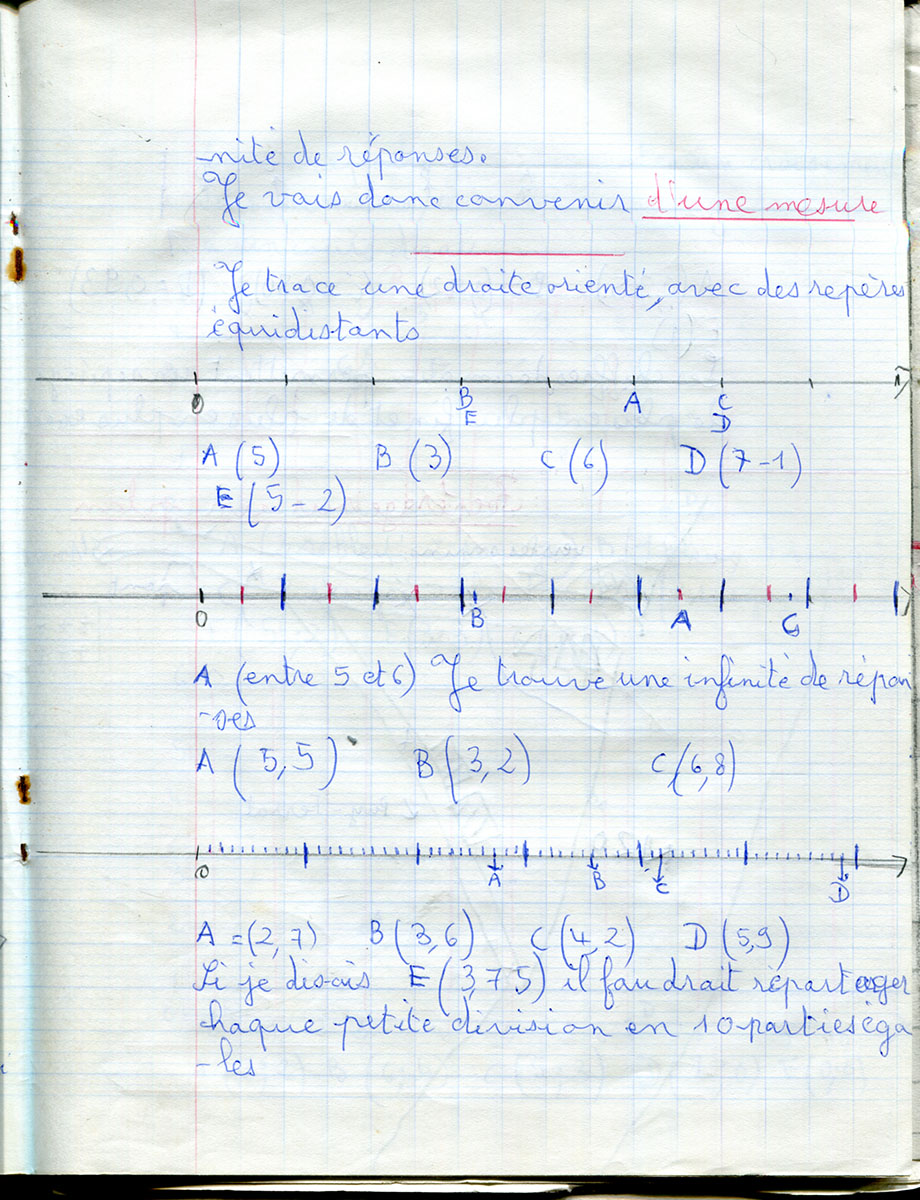 -nité de réponses.
Je vais donc convenir d'une mesure
Je trace une droite orienté, avec des repères
équidistants
0 B A C
E D
A (5) B (3) C (6) D (7-1)
E (5-2)
0 B A C
A (entre 5 et 6) Je trouve une infinité de répon
-ses
A (5,5) B (3,2) C (6,8)
0 A B C D
A =(2,7) B (3,6) C (4,2) D (5,9)
Si je disais E (3,75) il faudrait répartager
haque petite division en 10 parties éga
-les